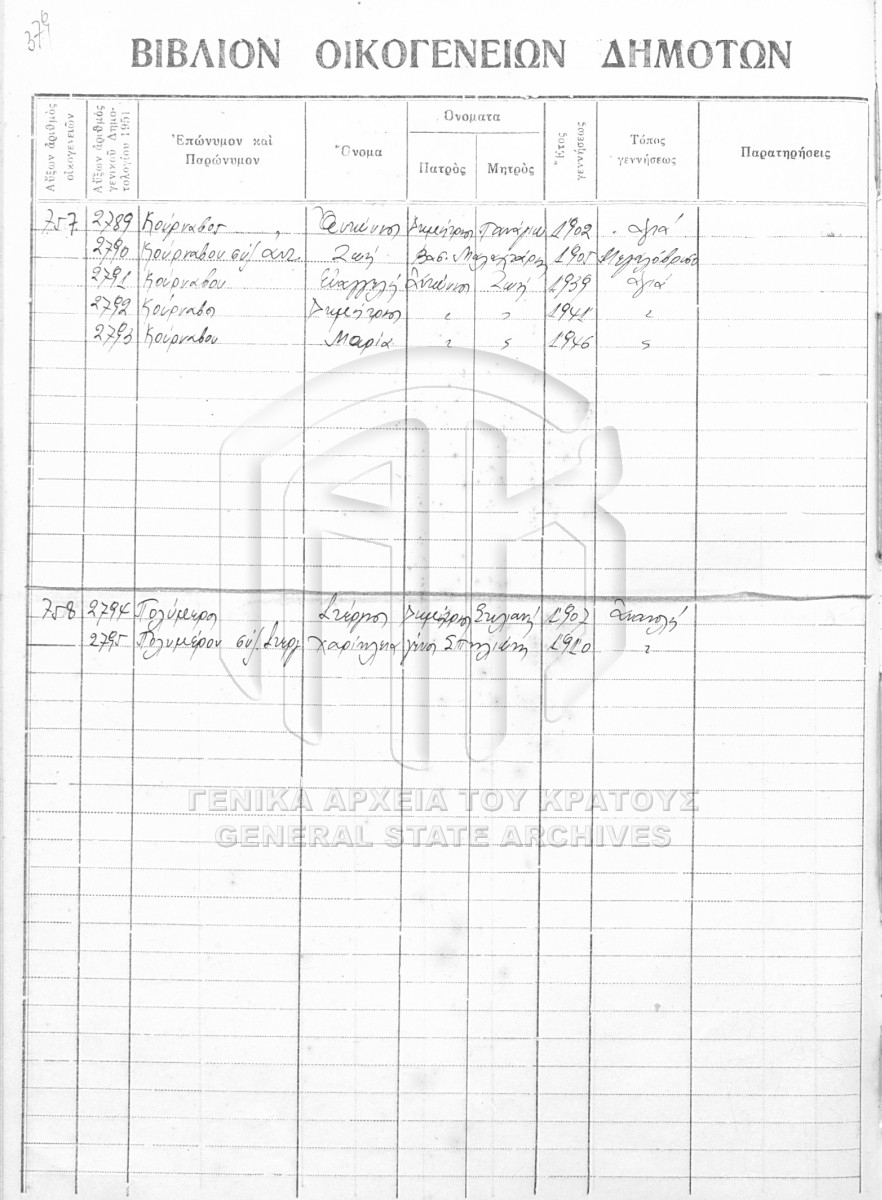 379
ΒΙΒΛΙΟΝ ΟΙΚΟΓΕΝΕΙΩΝ ΔΗΜΟΤΩΝ
Αὔξων ἀριθμὸς οἰκογενειῶν
Αὔξων ἀριθμὸς γενικοῦ Δημοτολογίου 1951
Ἐπώνυμον καὶ Παρώνυμον
Ὄνομα
Ὀνόματα
Πατρὸς
Μητρὸς
Ἔτος γεννήσεως
Τόπος γεννήσεως
Παρατηρήσεις
757 2789 Κούρναβος Ἀντώνιος Δημήτριος 1902 Ἁγιά
2790 Κούρναβου συζ. Ἀντ. Ζωή Βασ. 1905 Μεγαλόβρυσο
2791 Κούρναβου Εὐαγγελή Ἀντώνιος Ζωή 1939 Ἁγιά
2792 Κούρναβος Δημήτριος " " 1941 "
2793 Κούρναβου Μαρία " " 1946 "
758 2794 Πολύμερος Στέργιος Δημήτριος Στυλιανή 1907 Ἀνατολή
2795 Πολυμέρου συζ. Στεργ. Χαρίκλεια 1910 "
ΓΕΝΙΚΑ ΑΡΧΕΙΑ ΤΟΥ ΚΡΑΤΟΥΣ
GENERAL STATE ARCHIVES